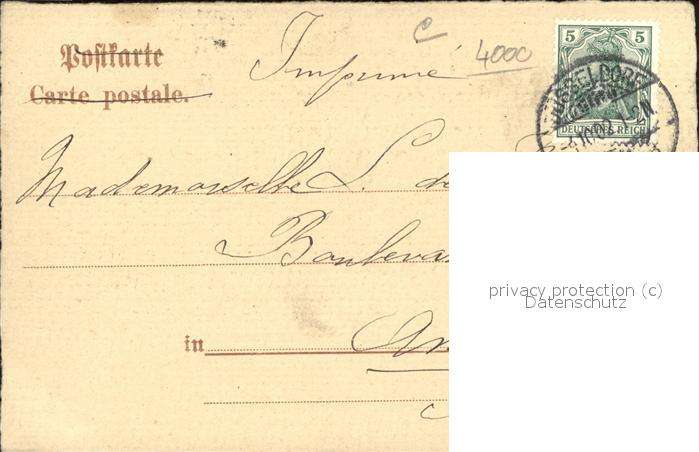 Postkarte
Carte postale.
Imprimé
4000
5 5
DÜSSELDORF
DEUTSCHES REICH
Mademoiselle L. de
Boulevar
in An
privacy protection (c)
Datenschutz